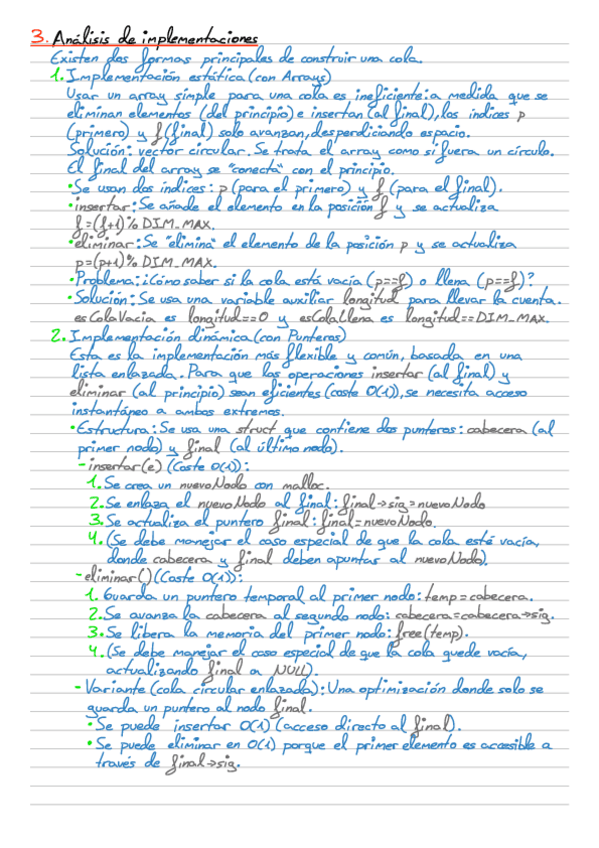 3. Análisis de implementaciones
Existen dos formas principales de construir una cola.
1. Implementación estática (con Arrays)
Usar un array simple para una cola es ineficiente: a medida que se
eliminan elementos (del principio) e insertan (al final), los indices p
(primero) y f (final) solo avanzan, desperdiciando espacio.
Solución: vector circular. Se trata el array como si fuera un círculo.
El final del array se "conecta" con el principio.
• Se usan dos indices: p (para el primero) y f (para el final).
• insertar: Se añade el elemento en la posición f y se actualiza
f=(f+1)% DIM_MAX.
• eliminar: Se "elimina" el elemento de la posición p y se actualiza
p=(p+1)% DIM_MAX.
• Problema: ¿Cómo saber si la cola está vacía (p==f) o llena (p==f)?
• Solución: Se usa una variable auxiliar longitud para llevar la cuenta.
esColaVacia es longitud==0 y esColaLlena es longitud==DIM_MAX.
2. Implementación dinámica (con Punteros)
Esta es la implementación más flexible y común, basada en una
lista enlazada. Para que las operaciones insertar (al final) y
eliminar (al principio) sean eficientes (coste O(1)), se necesita acceso
instantáneo a ambos extremos.
• Estructura: Se usa una struct que contiene dos punteros: cabecera (al
primer nodo) y final (al último nodo).
- insertar(e) (Coste O(1)):
1. Se crea un nuevoNodo con malloc.
2. Se enlaza el nuevoNodo al final: final→sig=nuevoNodo
3. Se actualiza el puntero final: final=nuevoNodo.
4. (Se debe manejar el caso especial de que la cola esté vacía,
donde cabecera y final deben apuntar al nuevoNodo).
- eliminar() (Coste O(1)):
1. Guarda un puntero temporal al primer nodo: temp=cabecera.
2. Se avanza la cabecera al segundo nodo: cabecera=cabecera→sig.
3. Se libera la memoria del primer nodo: free(temp).
4. (Se debe manejar el caso especial de que la cola quede vacía,
actualizando final a NULL).
- Variante (cola circular enlazada): Una optimización donde solo se
guarda un puntero al nodo final.
• Se puede insertar O(1) (acceso directo al final).
• Se puede eliminar en O(1) porque el primer elemento es accesible a
través de final→sig.